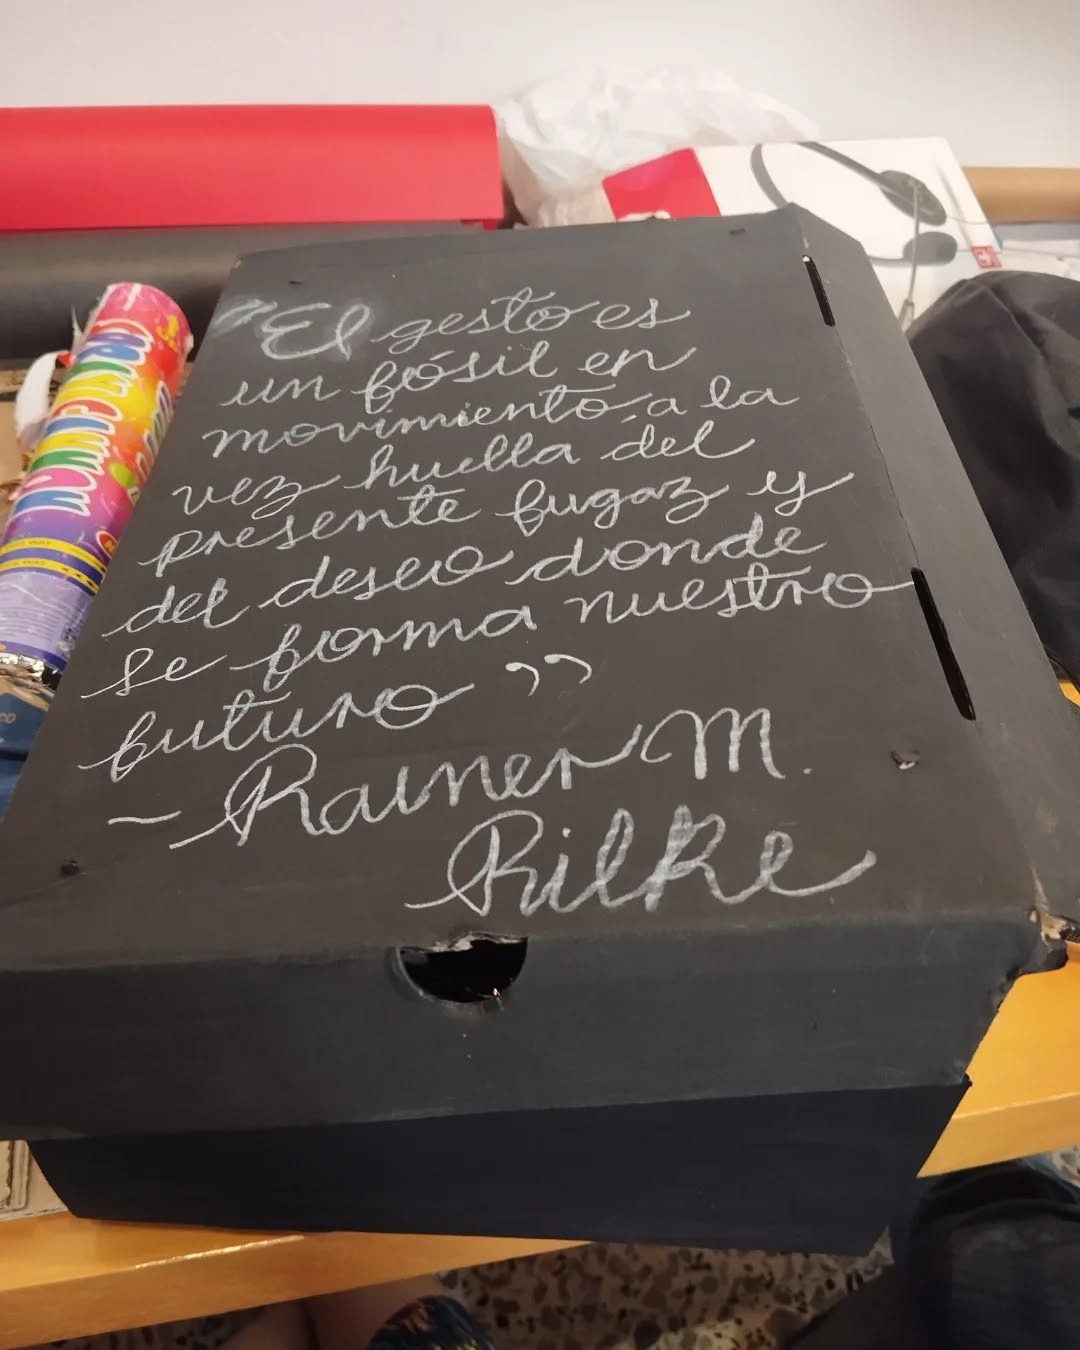 "El gesto es
un fósil en
movimiento, a la
vez huella del
presente fugaz y
del deseo donde
se forma nuestro
futuro"
- Rainer M.
Rilke